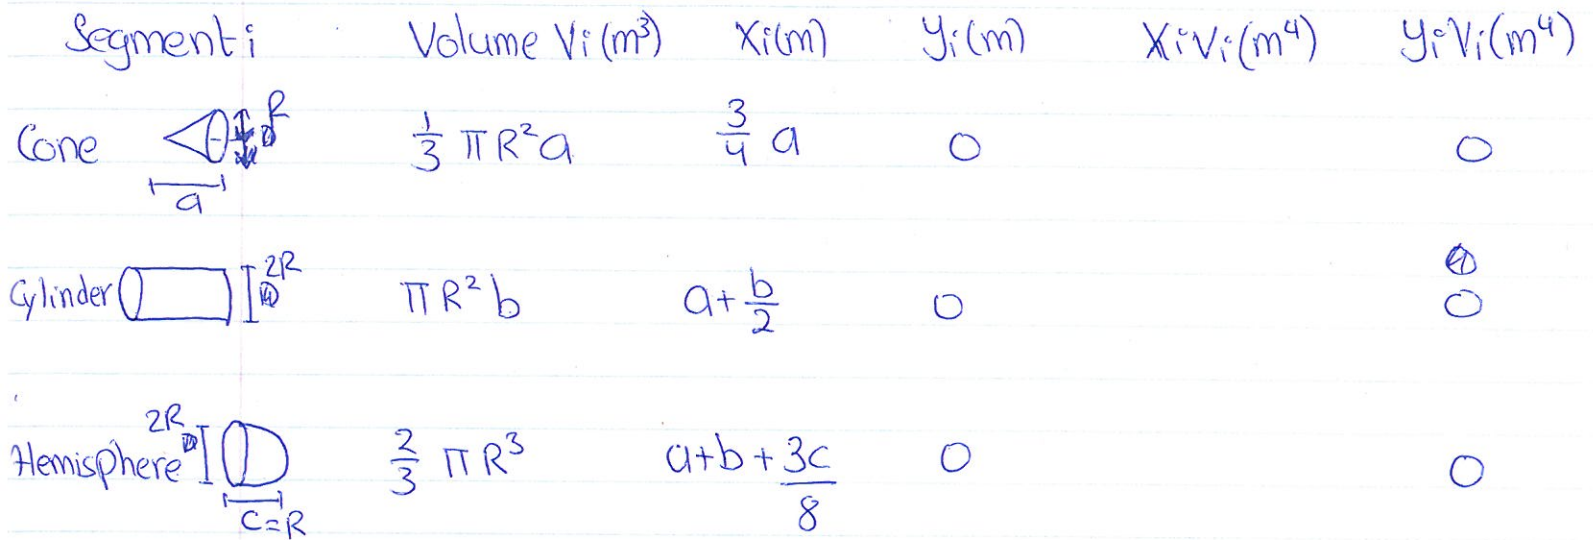 Segment i Volume Vi (m³) Xi(m) yi(m) XiVi(m⁴) yiVi(m⁴)
Cone R a 1/3 πR²a 3/4 a 0 0
Cylinder 2R πR²b a+b/2 0 0
Hemisphere 2R c=R 2/3 πR³ a+b+3c/8 0 0